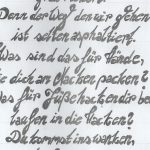 Denn der Weg den wir gehen
ist selten asphaltiert.
Was sind das für Hände,
die dich am Nacken packen?
Was für Füße hacken dir bei
laufen in die Hacken?
Du kommst ins wanken,